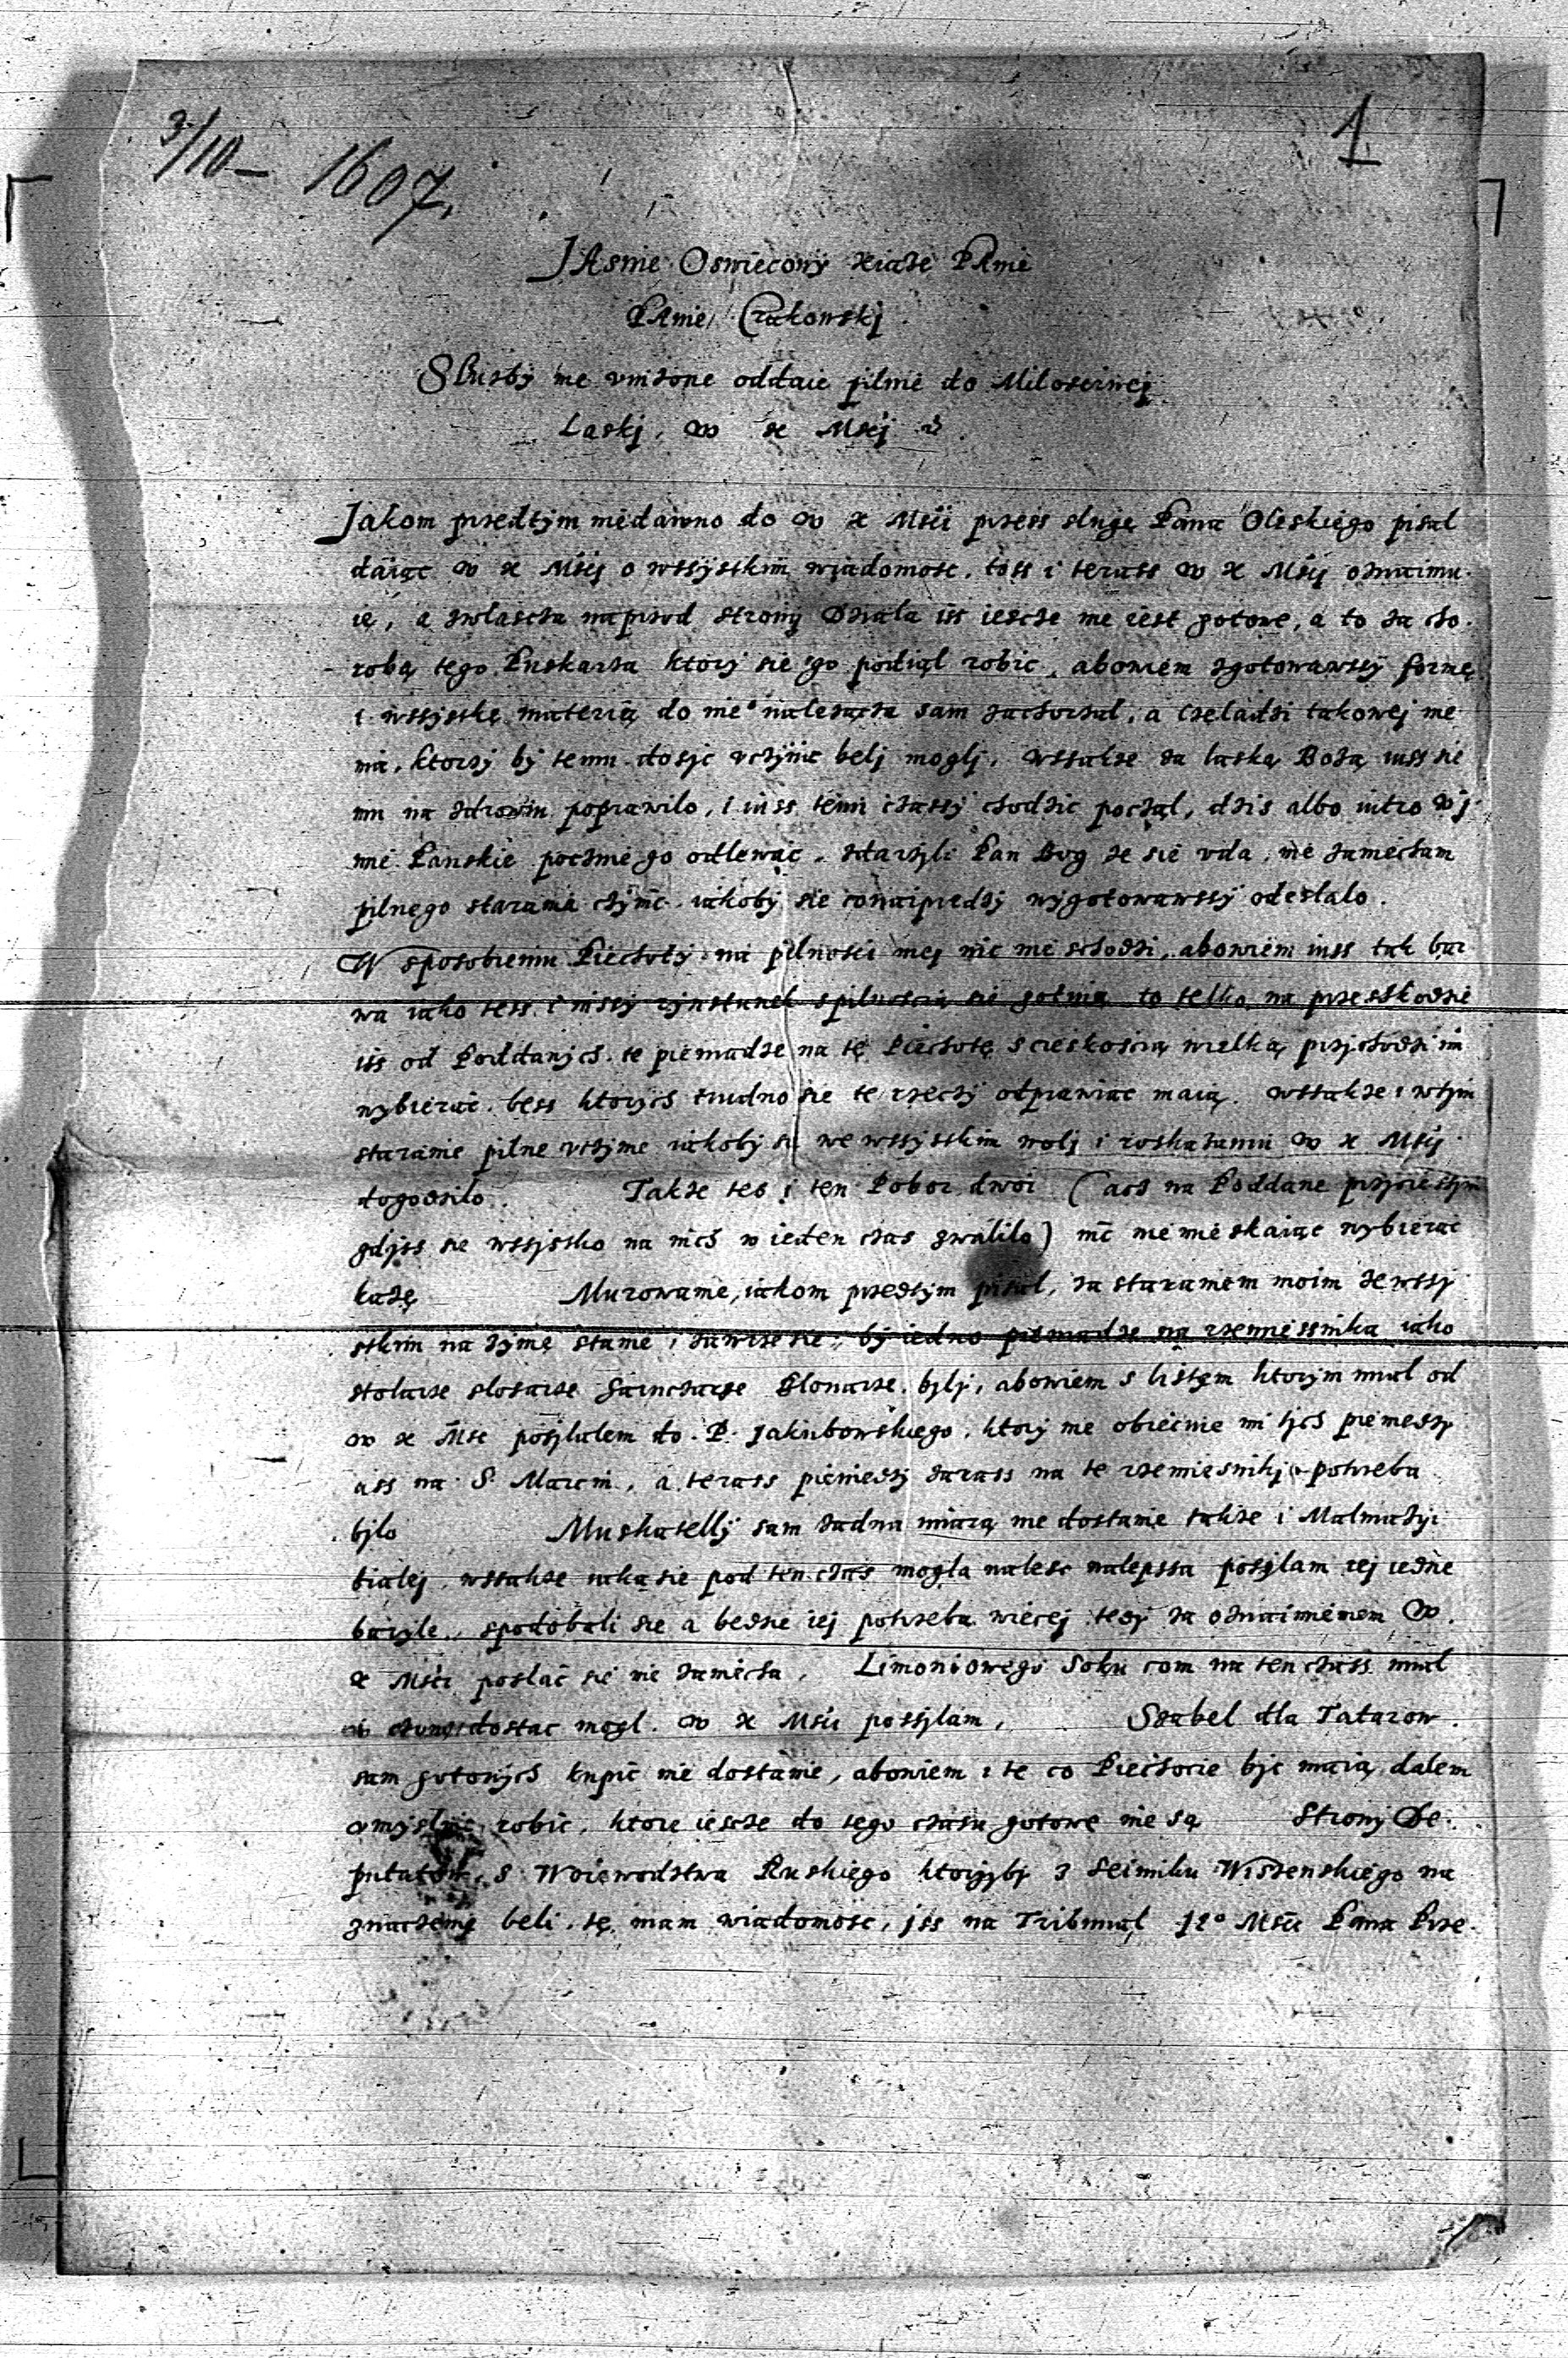 3/10 – 1607.
1
JAsnie Oswiecony Xiąze PAnie
PAnie Crakowskj
Sluzby me vnizone oddaie pilnie do Milosciwej
Laskj. W X Msej
Jakom przedtym niedawno do W X Mscii przess slugę Pana Oleskiego pisal
daiąc W X Mscij o wssystkim wiadomosc. toss i terass W X Mscij oznaimu-
ię, a zwlascza naprzod strony Dziala iss iescze nie iest gotowe, a to za cho-
robą tego Puskarza ktory sie go podiąl robic, abowiem zgotowawssy formę
i wssyskę materią do nie° nalezącza sam zachorzal, a czeladzi takowej nie
ma, ktorzy by temu dosyc vczynic belj moglj, wssakze za laską Bozą iuss sie
mu na zdrowiu poprawilo, i iuss temi czassy chodzic począl, dzis albo iutro W j-
mie Panskie pocznie go odlewac, zdarzyli Pan Bog ze sie vda, nie zamiecham
pilnego starania czynic iakoby sie conaipredzy wygotowawssy odeslalo.
W sposobieniu Piechoty na pilnosci mej nic nie schodzi, abowiem iuss tak bar
wa iako tess i inssy rynstunek s pilnoscią sie gotuią to telko na przeskodzie
iss od Poddanych te pieniadze na tę Piechotę s cieskoscią wielką przychodzi im
wybierac. bess ktorych trudno sie te rzeczy odprawiac maią. wssakze i wtym
staranie pilne vczynie iakoby sie we wssystkim wolj i roskazaniu W X Mscij
dogodzilo. Takze tes i ten Pobor dwoi (acz na Poddane
gdyss sie wssystko na nich w ieden czas zwalilo) nic nie mieskaiąc wybierac
kazę Murowanie, iakom przedtym pisal, za staraniem moim ze wssy
stkim na zymę stanie i zawrze sie, by iedno pieniadze na rzemiessnika iako
stolarze slosarze Garncarze Blonarze bylj, abowiem s listem ktorym mial od
W X Msc posylalem do P. Jakubowskiego, ktory nie obiecuie mi tych pieniedzy
ass na S. Marcin, a terass pieniedzy zarass na te rzemiesnikj potrzeba
bylo Muskatelly sam zadna miarą nie dostanie takze i Malmazyi
bialej, wssakze iaka sie pod ten czas mogla nalesc nalepssa posylam iej iedne
baryle, spodobali sie a bedzie iej potrzeba wiecej tedy za oznaimieniem W.
X Mscii poslac sie nie zamiecha, Limoniowego Soku com na ten czass mial
dostac mogl. W X Mscii possylam, Szabel dla Tatarow.
sam gotowych kupic nie dostanie, abowiem i te co Piechocie byc maią dalem
vmyslnie robic, ktore iescze do tego czasu gotowe nie są Strony De-
putatow s Woiewodstwa Ruskiego ktorzyby z Seimiku Wiszenskiego na
znaczeni beli, tę mam wiadomosc, jss na Tribunal J1° Mscii Pana Prze-